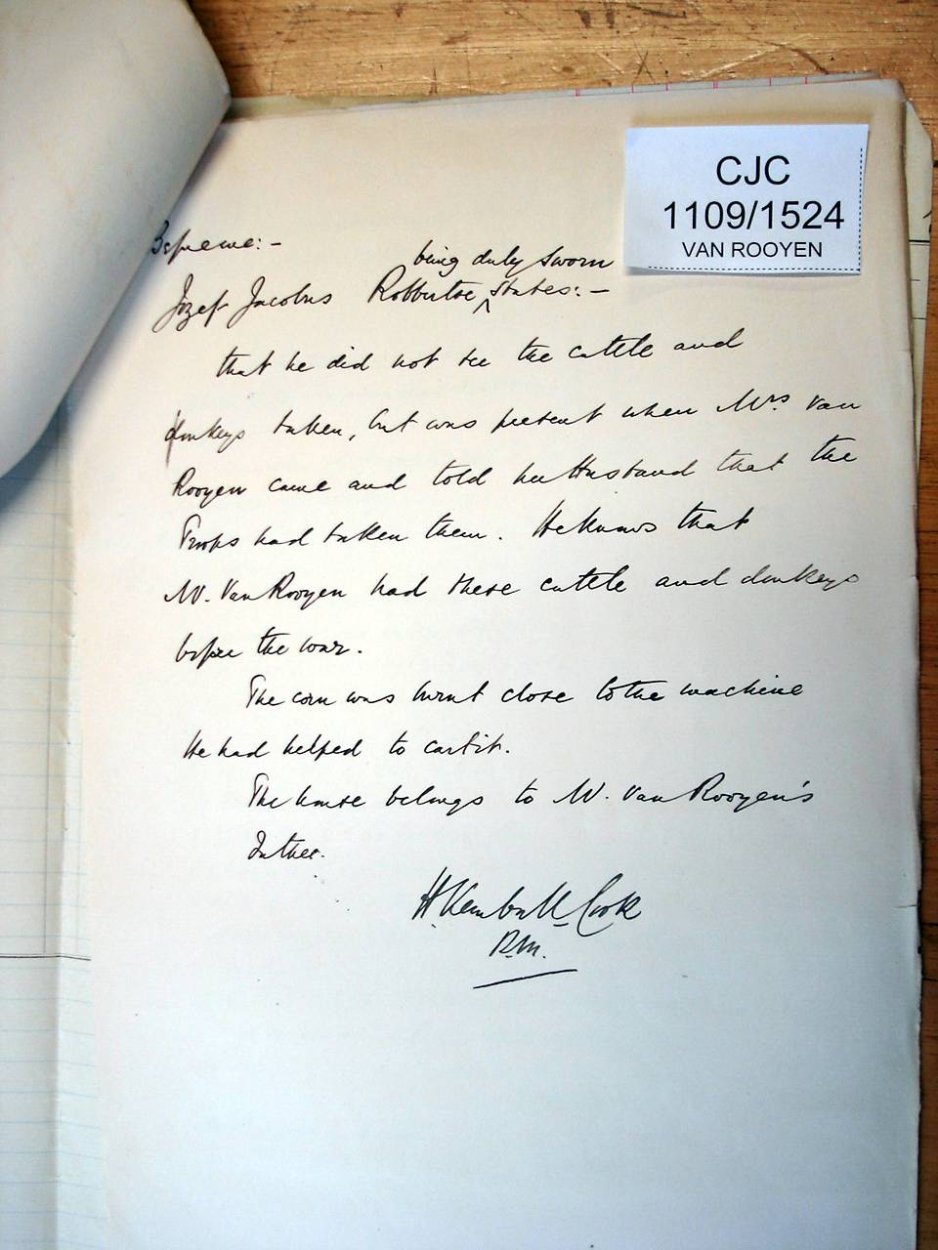 CJC
1109/1524
VAN ROOYEN
Before me:-
being duly sworn
Jozef Jacobus Robbertse ^ states:-
that he did not see the cattle and
donkeys taken, but was present when Mrs van
Rooyen came and told her Husband that the
Troops had taken them. He knows that
W. Van Rooyen had these cattle and donkeys
before the war.
The corn was burnt close to the machine
He had helped to cart it.
The house belongs to W. Van Rooyen's
Father.
H. Kemball-Cook
R.M.